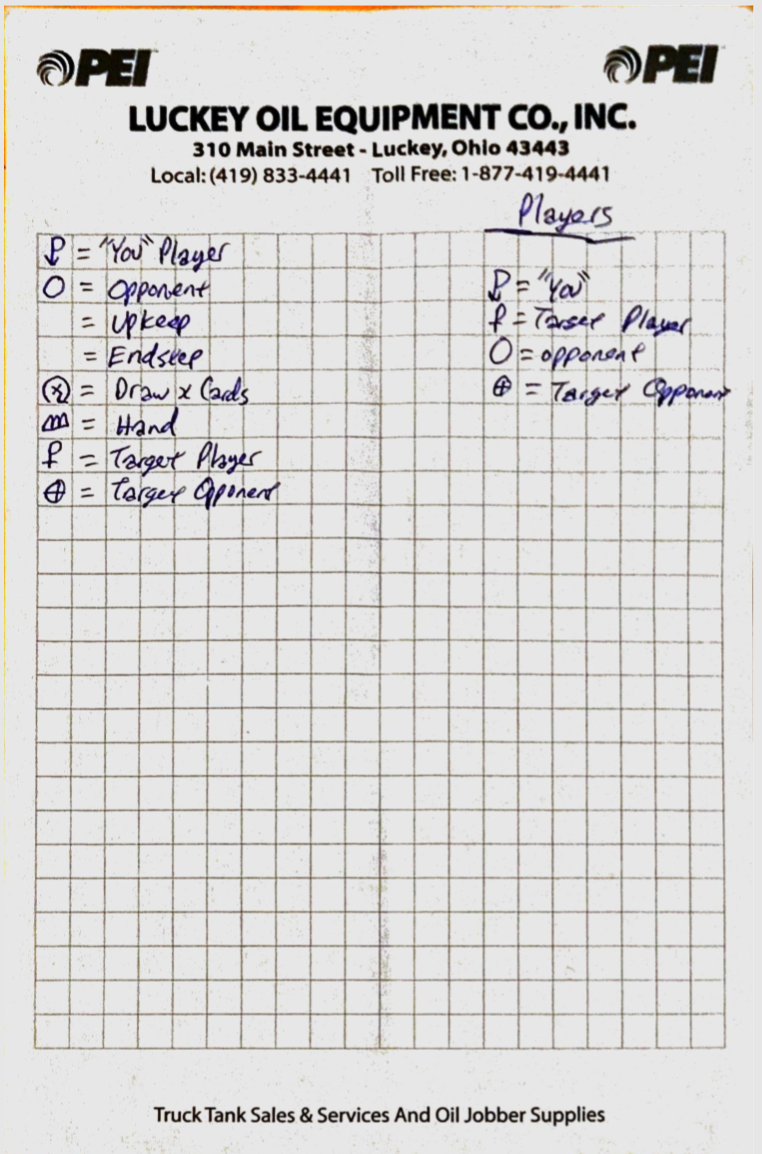 PEI PEI
LUCKEY OIL EQUIPMENT CO., INC.
310 Main Street - Luckey, Ohio 43443
Local: (419) 833-4441 Toll Free: 1-877-419-4441
= "You" Player
O = Opponent
= Upkeep
= Endstep
ⓧ = Draw x Cards
= Hand
f = Target Player
⊕ = Target Opponent
Players
= "You"
f = Target Player
O = opponent
⊕ = Target Opponent
Truck Tank Sales & Services And Oil Jobber Supplies